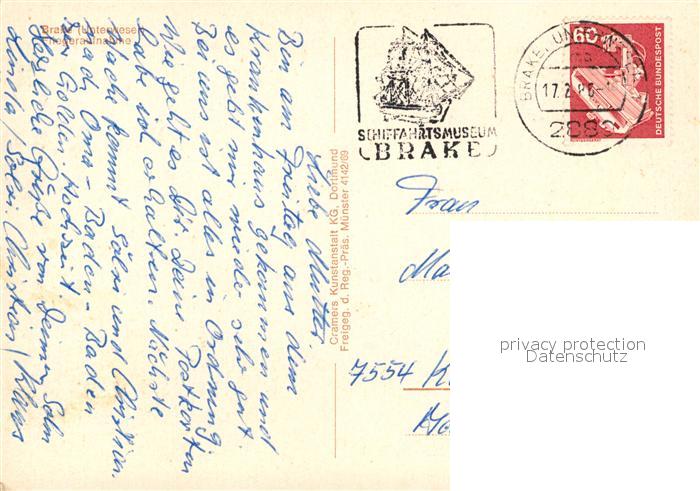 Brake (Unterweser)
Fliegeraufnahme
Liebe Mutter
Bin am Freitag aus dem
Krankenhaus gekommen und
es geht mir wieder sehr gut.
Bei uns ist alles in Ordnung
Wie geht es Dir Deine Postkarten
hat ich erhalten. Nächste
Woche kommt Silvi und Christian
nach Oma - Baden-Baden
zur Golden. Hochzeit
Herzliche Grüße von Deinem Sohn
Linda / Silvi. Christian / Klaus
Cramers Kunstanstalt KG, Dortmund
Freigeg. d. Reg.-Präs. Münster 4142/69
SCHIFFAHRTSMUSEUM
BRAKE
BRAKE, UN
17.2.86
2880
60
DEUTSCHE BUNDESPOST
Frau
Ma
7554 K
privacy protection
Datenschutz